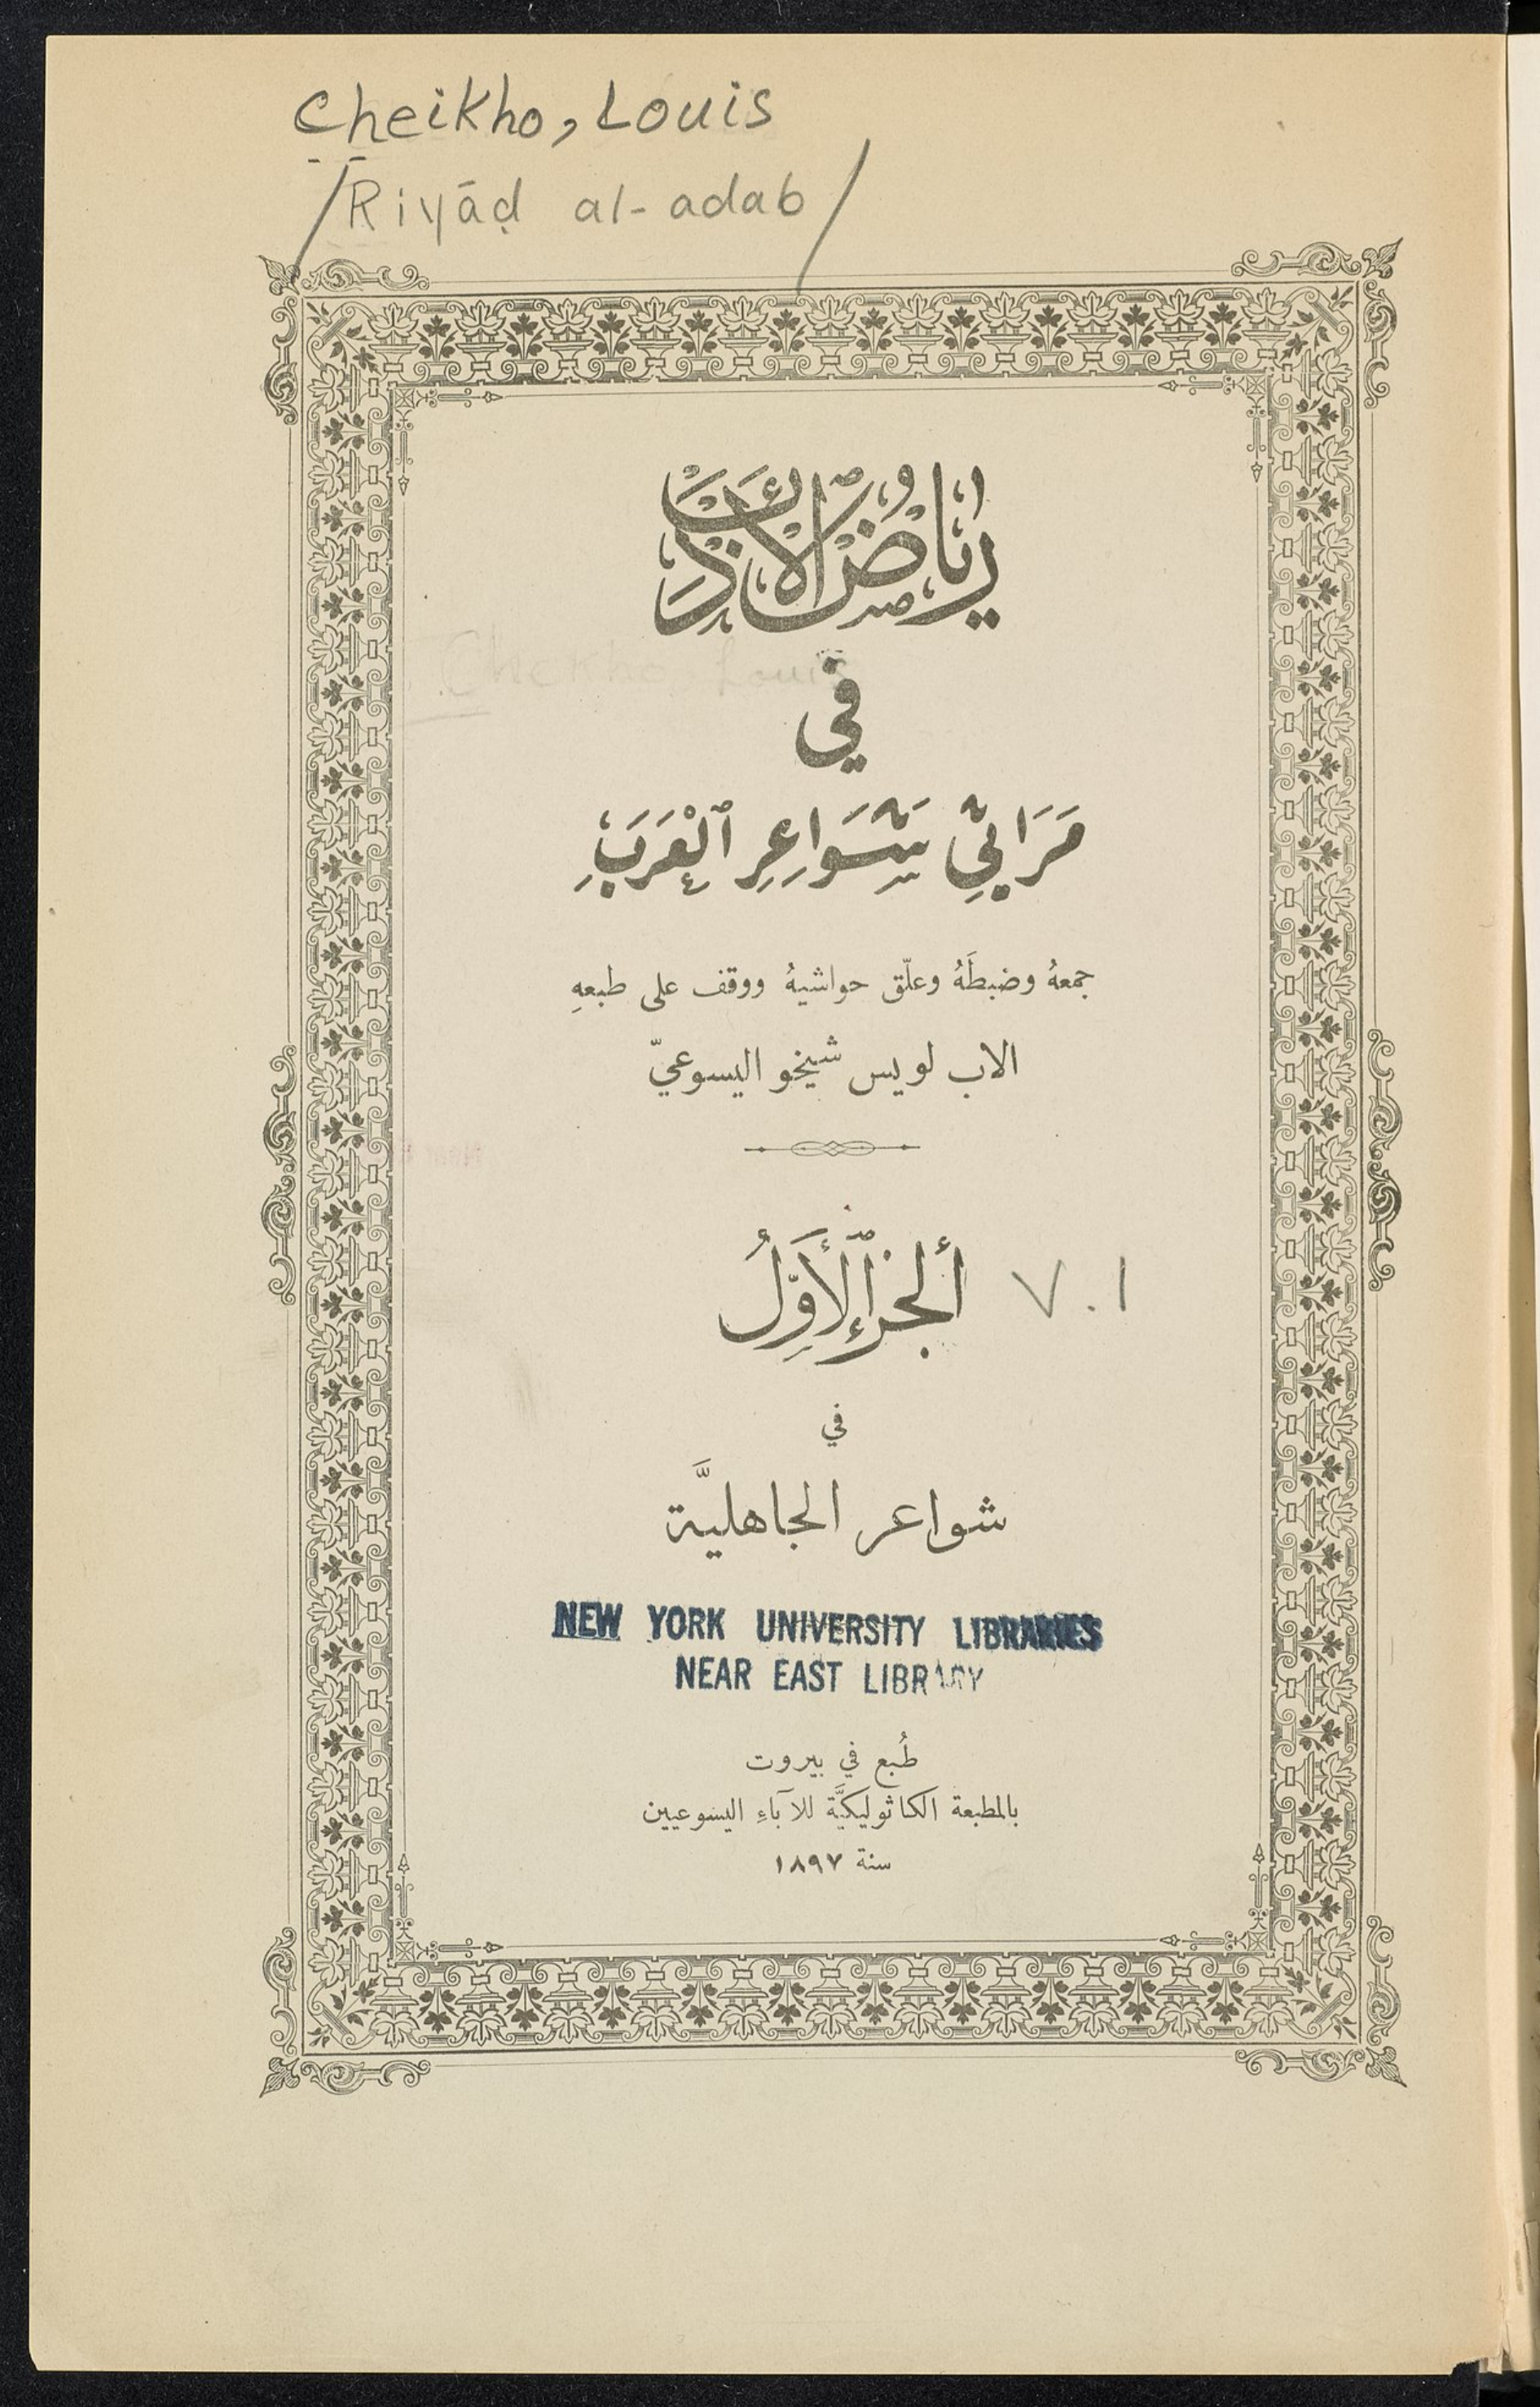 Cheikho, Louis
/Riyāḍ al-adab/
رياض الأدب
في
مَرَاثِي شَوَاعِرِ ٱلْعَرَبِ
جمعهُ وضبطَهُ وعلّق حواشيهُ ووقف على طبعهِ
الاب لويس شيخو اليسوعيّ
ألجزء ٱلأَوَّلُ V.1
في
شواعر الجاهليَّة
NEW YORK UNIVERSITY LIBRARIES
NEAR EAST LIBRARY
طُبع في بيروت
بالمطبعة الكاثوليكيَّة للآباءِ اليسوعيين
سنة ١٨٩٧